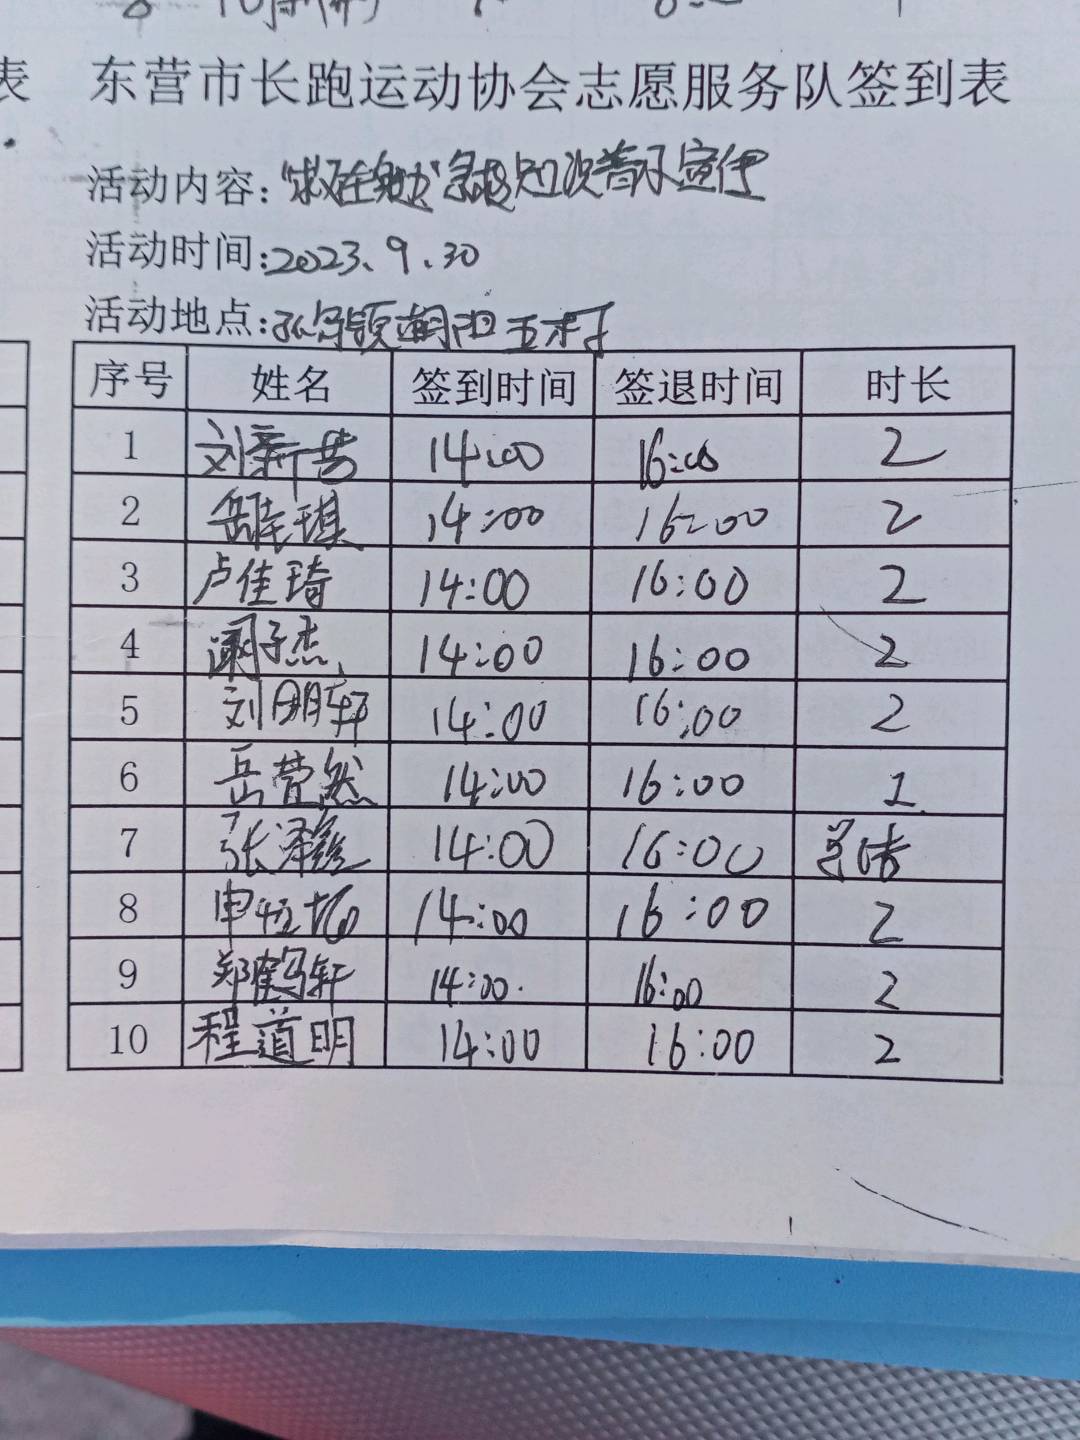 表 东营市长跑运动协会志愿服务队签到表
活动内容:“救在身边”急救知识普及宣传
活动时间:2023、9、30
活动地点:孤岛镇朝阳五村
序号 姓名 签到时间 签退时间 时长
1 刘新 14:00 16:00 2
2 岳 琪 14:00 16:00 2
3 卢佳琦 14:00 16:00 2
4 阚子杰 14:00 16:00 2
5 刘明轩 14:00 16:00 2
6 岳萱然 14:00 16:00 2
7 张泽 14:00 16:00
8 申恒 14:00 16:00 2
9 郑鹤轩 14:00. 16:00 2
10 程道明 14:00 16:00 2